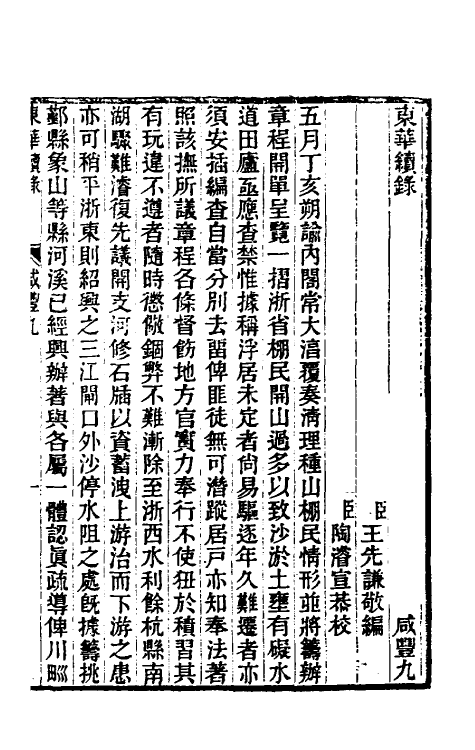 東華續錄　咸豐九
臣王先謙敬編
臣陶濬宣恭校
五月丁亥朔諭內閣常大淳覆奏清理種山棚民情形並將籌辦
章程開單呈覽一摺浙省棚民開山過多以致沙淤土壅有礙水
道田廬亟應查禁惟據稱浮居未定者尚易驅逐年久難遷者亦
須安插編查自當分別去留俾匪徒無可潛蹤居戶亦知奉法著
照該撫所議章程各條督飭地方官實力奉行不使狃於積習其
有玩違不遵者隨時懲儆錮弊不難漸除至浙西水利餘杭縣南
湖驟難濬復先議開支河修石牐以資蓄洩上游治而下游之患
亦可稍平浙東則紹興之三江閘口外沙停水阻之處既據籌挑
鄞縣象山等縣河溪已經興辦著與各屬一體認眞疏導俾川畛
東華續錄　咸豐九　一